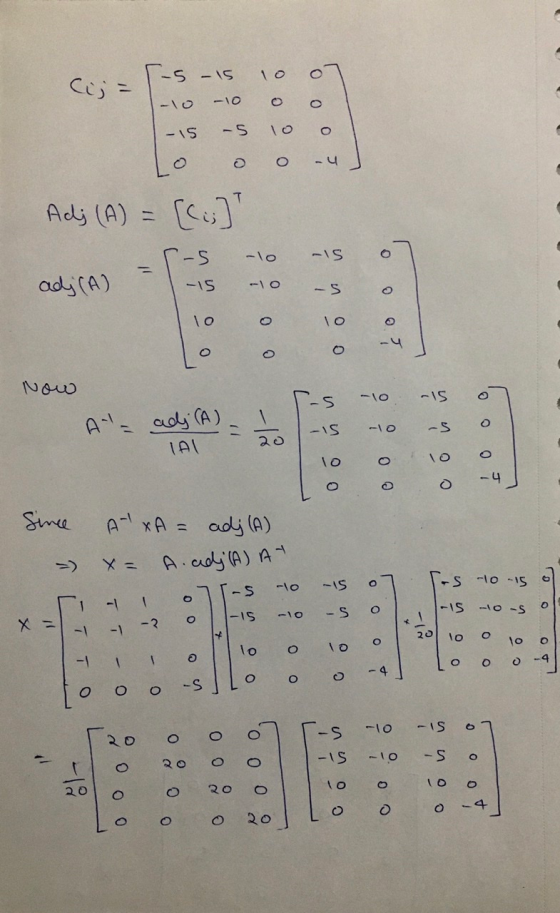 Cij = [ -5 -15 10 0
-10 -10 0 0
-15 -5 10 0
0 0 0 -4 ]
Adj(A) = [Cij]ᵀ
adj(A) = [ -5 -10 -15 0
-15 -10 -5 0
10 0 10 0
0 0 0 -4 ]
Now
A⁻¹ = adj(A) / |A| = 1/20 [ -5 -10 -15 0
-15 -10 -5 0
10 0 10 0
0 0 0 -4 ]
Since A⁻¹ x A = adj(A)
=> x = A. adj(A) A⁻¹
x = [ 1 -1 1 0
-1 -1 -2 0
-1 1 1 0
0 0 0 -5 ] x [ -5 -10 -15 0
-15 -10 -5 0
10 0 10 0
0 0 0 -4 ] x 1/20 [ -5 -10 -15 0
-15 -10 -5 0
10 0 10 0
0 0 0 -4 ]
= 1/20 [ 20 0 0 0
0 20 0 0
0 0 20 0
0 0 0 20 ] [ -5 -10 -15 0
-15 -10 -5 0
10 0 10 0
0 0 0 -4 ]